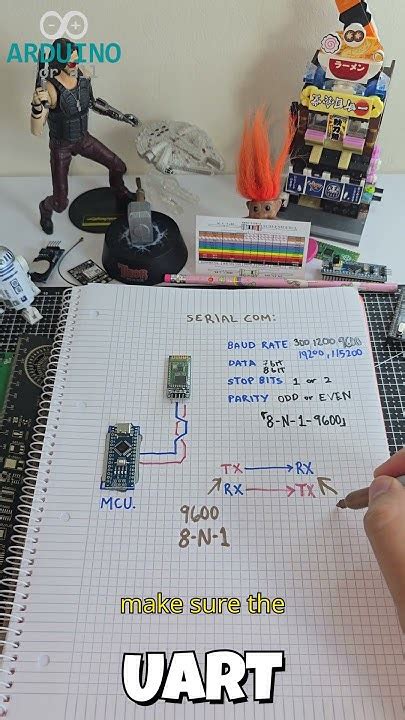 ARDUINO
ラーメン
SERIAL COM:
BAUD RATE 300,1200 9600
19200, 115200
DATA 7bit
8bit
STOP BITS 1 or 2
PARITY ODD or EVEN
「8-N-1-9600」
TX → RX
RX → TX
MCU.
9600
8-N-1
make sure the
UART